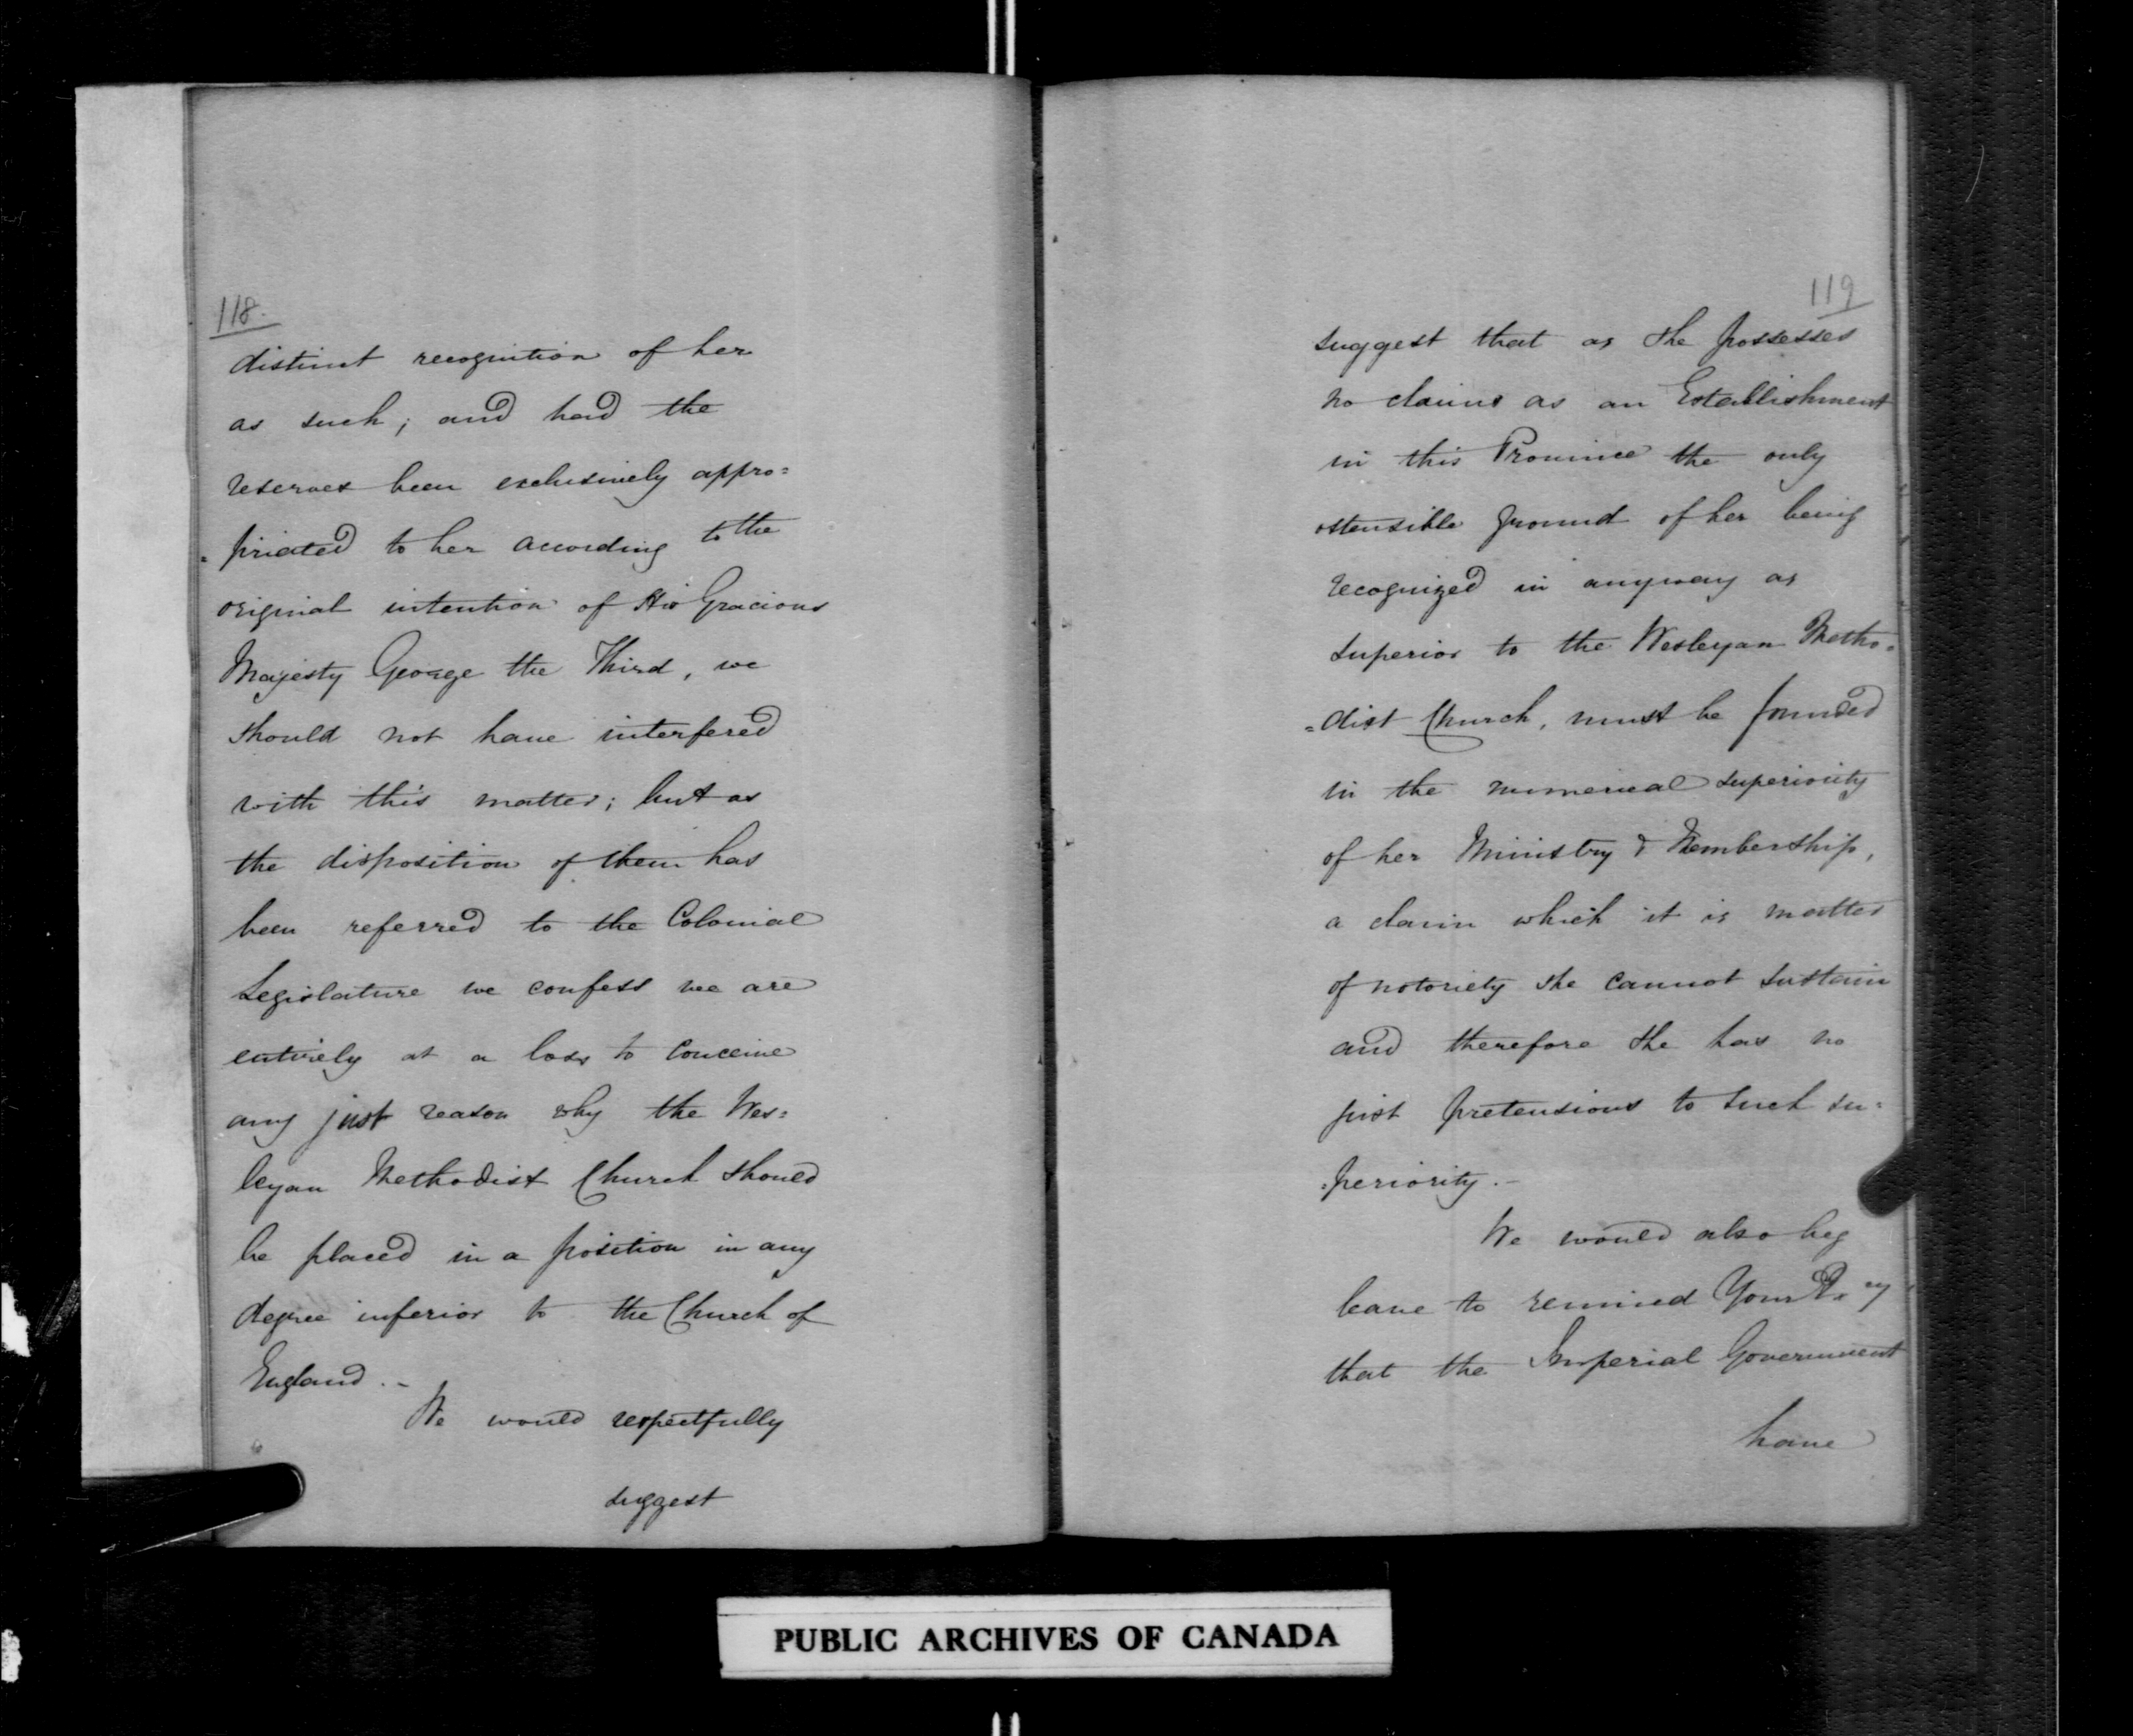 118.
distinct recognition of her
as such; and had the
reserves been exclusively appro=
=priated to her according to the
original intention of His Gracious
Majesty George the Third, we
should not have interfered
with this matter; but as
the disposition of them has
been referred to the Colonial
Legislature we confess we are
entirely at a loss to conceive
any just reason why the Wes=
leyan Methodist Church should
be placed in a position in any
degree inferior to the Church of
England.-
We would respectfully
suggest
119
suggest that as she possesses
no claims as an Establishment
in this Province the only
ostensible ground of her being
recognized in anyway as
superior to the Wesleyan Metho=
=dist Church, must be founded
in the numerical superiority
of her Ministry & Membership,
a claim which it is matter
of notoriety she cannot sustain
and therefore she has no
just pretensions to such su=
=periority.-
We would also beg
leave to remind Your Exy
that the Imperial Government
have
PUBLIC ARCHIVES OF CANADA